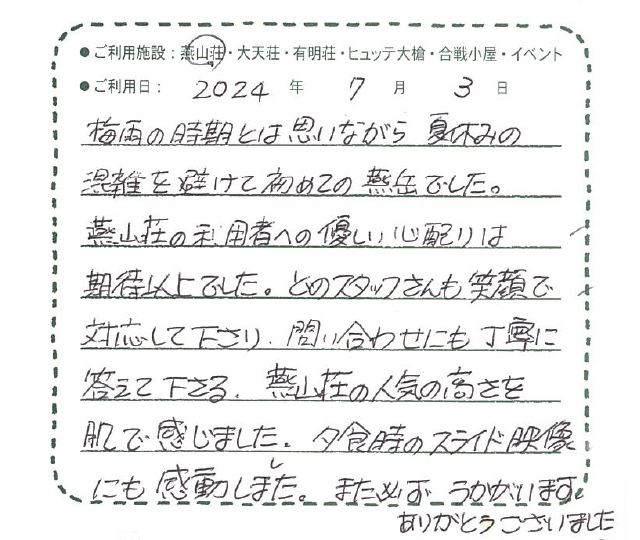 ●ご利用施設：燕山荘・大天荘・有明荘・ヒュッテ大槍・合戦小屋・イベント
●ご利用日： 2024 年 7 月 3 日
梅雨の時期とは思いながら 夏休みの
混雑を避けて初めての燕岳でした。
燕山荘の利用者への優しい心配りは
期待以上でした。どのスタッフさんも笑顔で
対応して下さり、問い合わせにも丁寧に
答えて下さる、燕山荘の人気の高さを
肌で感じました。夕食時のスライド映像
にも感動しました。また必ずうかがいます。
ありがとうございました